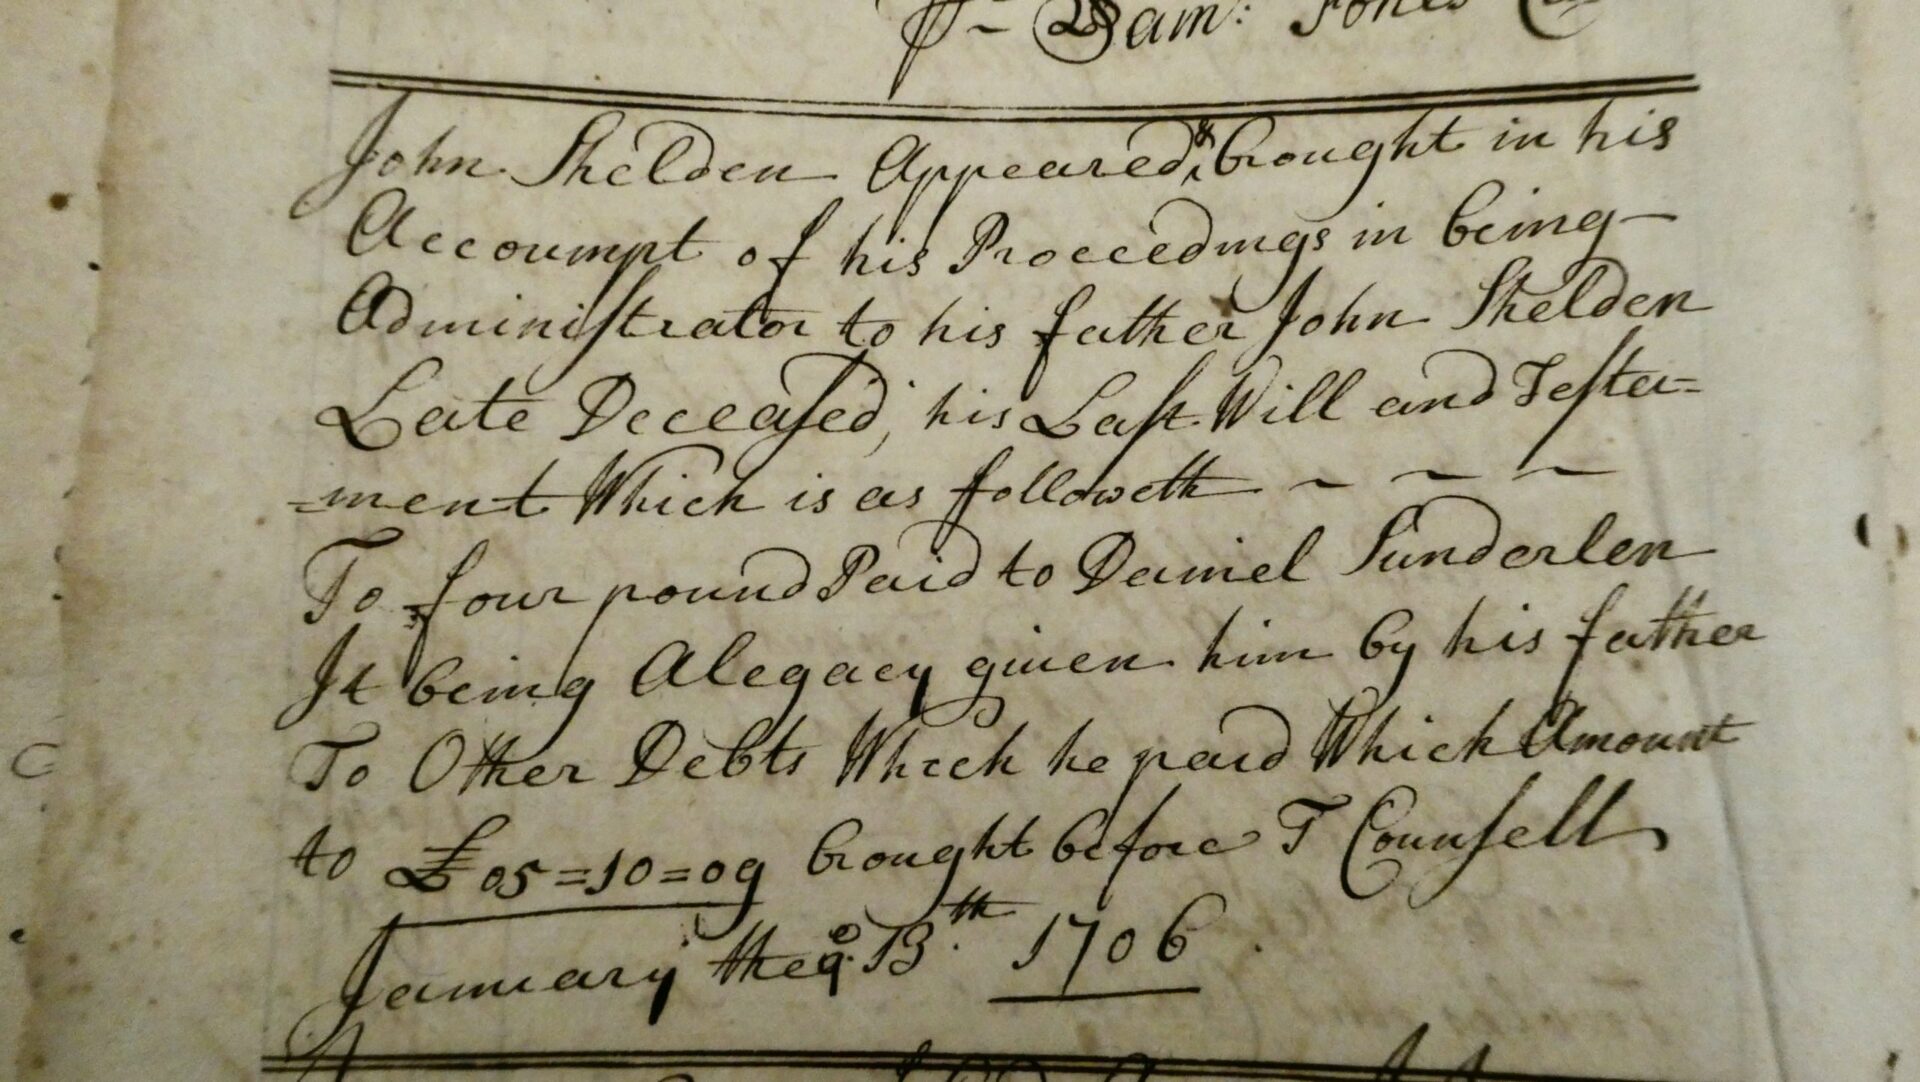 Sam: Jones
John Shelden Appeared & brought in his
Accoumpt of his Proceedings in being
Administrator to his father John Shelden
Late Deceased, his Last Will and Testa=
=ment Which is as followeth ~ ~ ~
To four pound Paid to Daniel Sunderlen
It being A legacy giuen him by his father
To Other Debts Which he paid Which Amount
to £ 05=10=09 brought before T Counsell
January the 13.th 1706